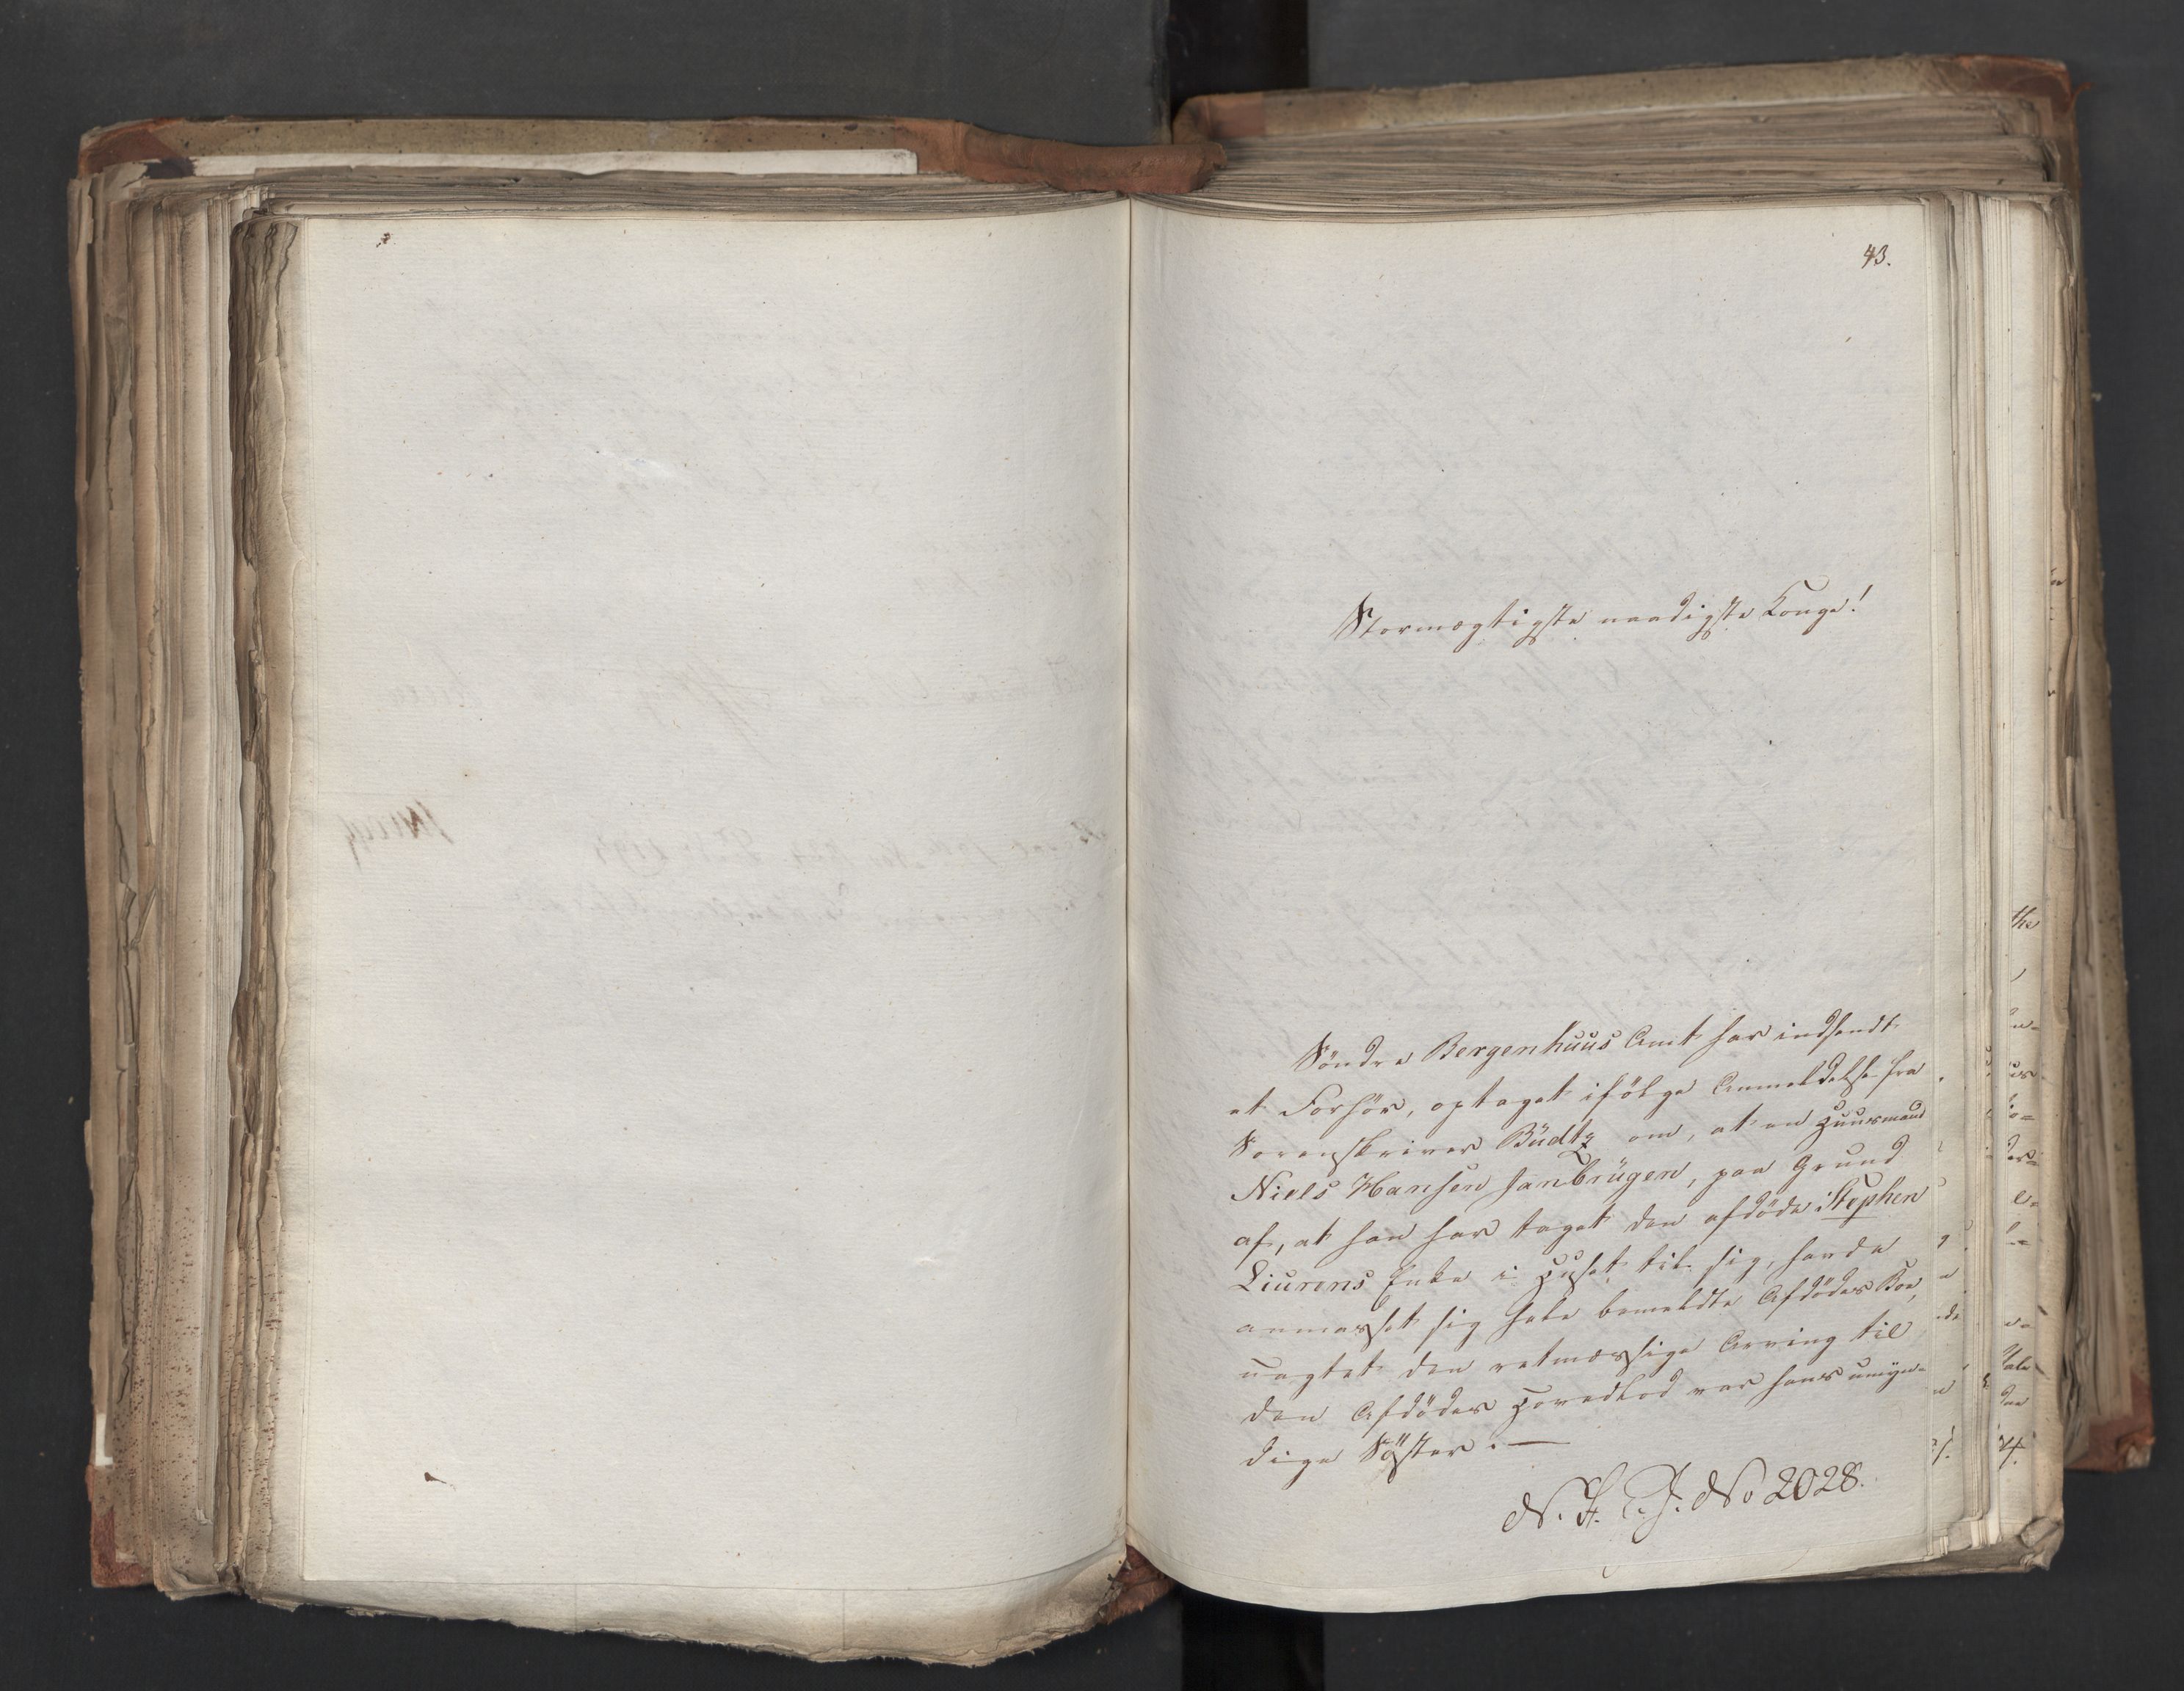 43.
Stormægtigste naadigste Konge!
Söndre Bergenhuus Amt har indsendt
et Forhør, optaget ifölge Anmeldelse fra
Sorenskriver Büdtz om, at en Huusmand
Niels Hansen Janbrügen, paa Grund
af, at han har taget den afdöde Stephen
Liurens Enke i Huset til sig, havde
anmasset sig hele bemeldte Afdödes Boe,
uagtet den retmæssige Arving til
den Afdödes Hovedlod var hans umyn-
dige Söster. —
No 2028.